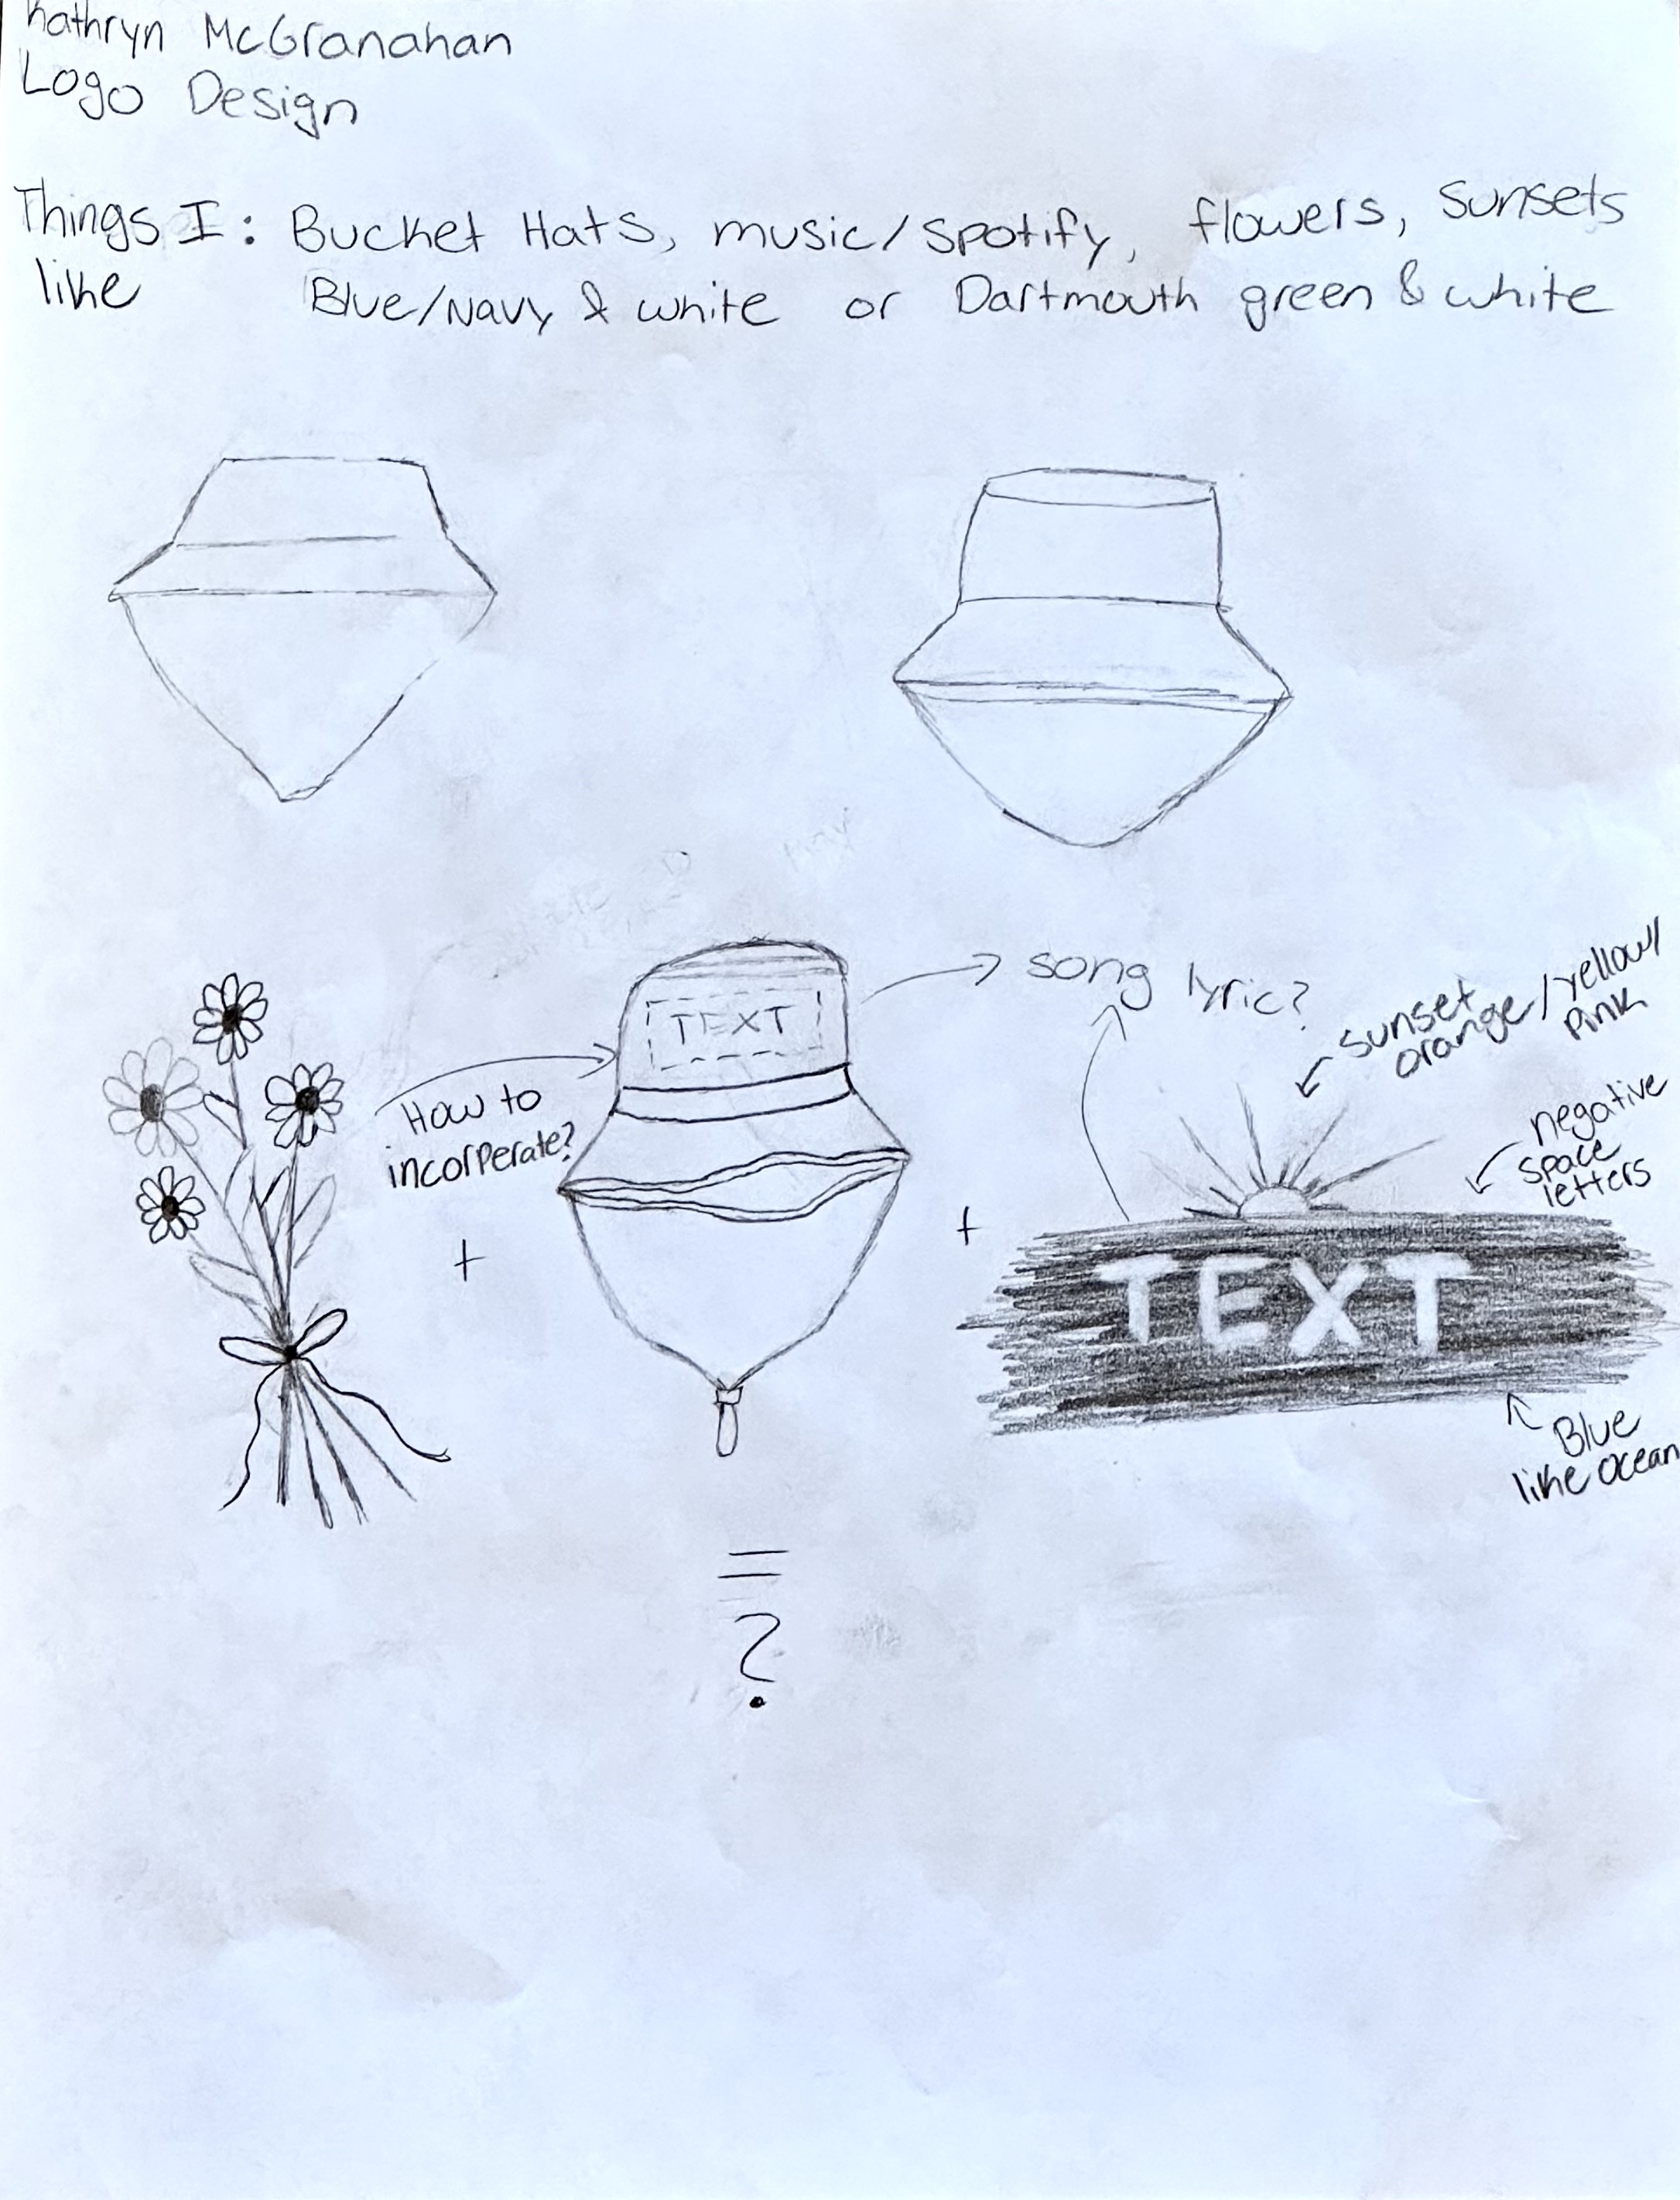 Kathryn McGranahan
Logo Design
Things I : Bucket Hats, music/spotify, flowers, sunsets
like Blue/Navy & white or Dartmouth green & white
TEXT
song lyric?
How to
incorperate?
sunset
orange/yellow/
pink
negative
space
letters
+
+
TEXT
Blue
like ocean
=
?